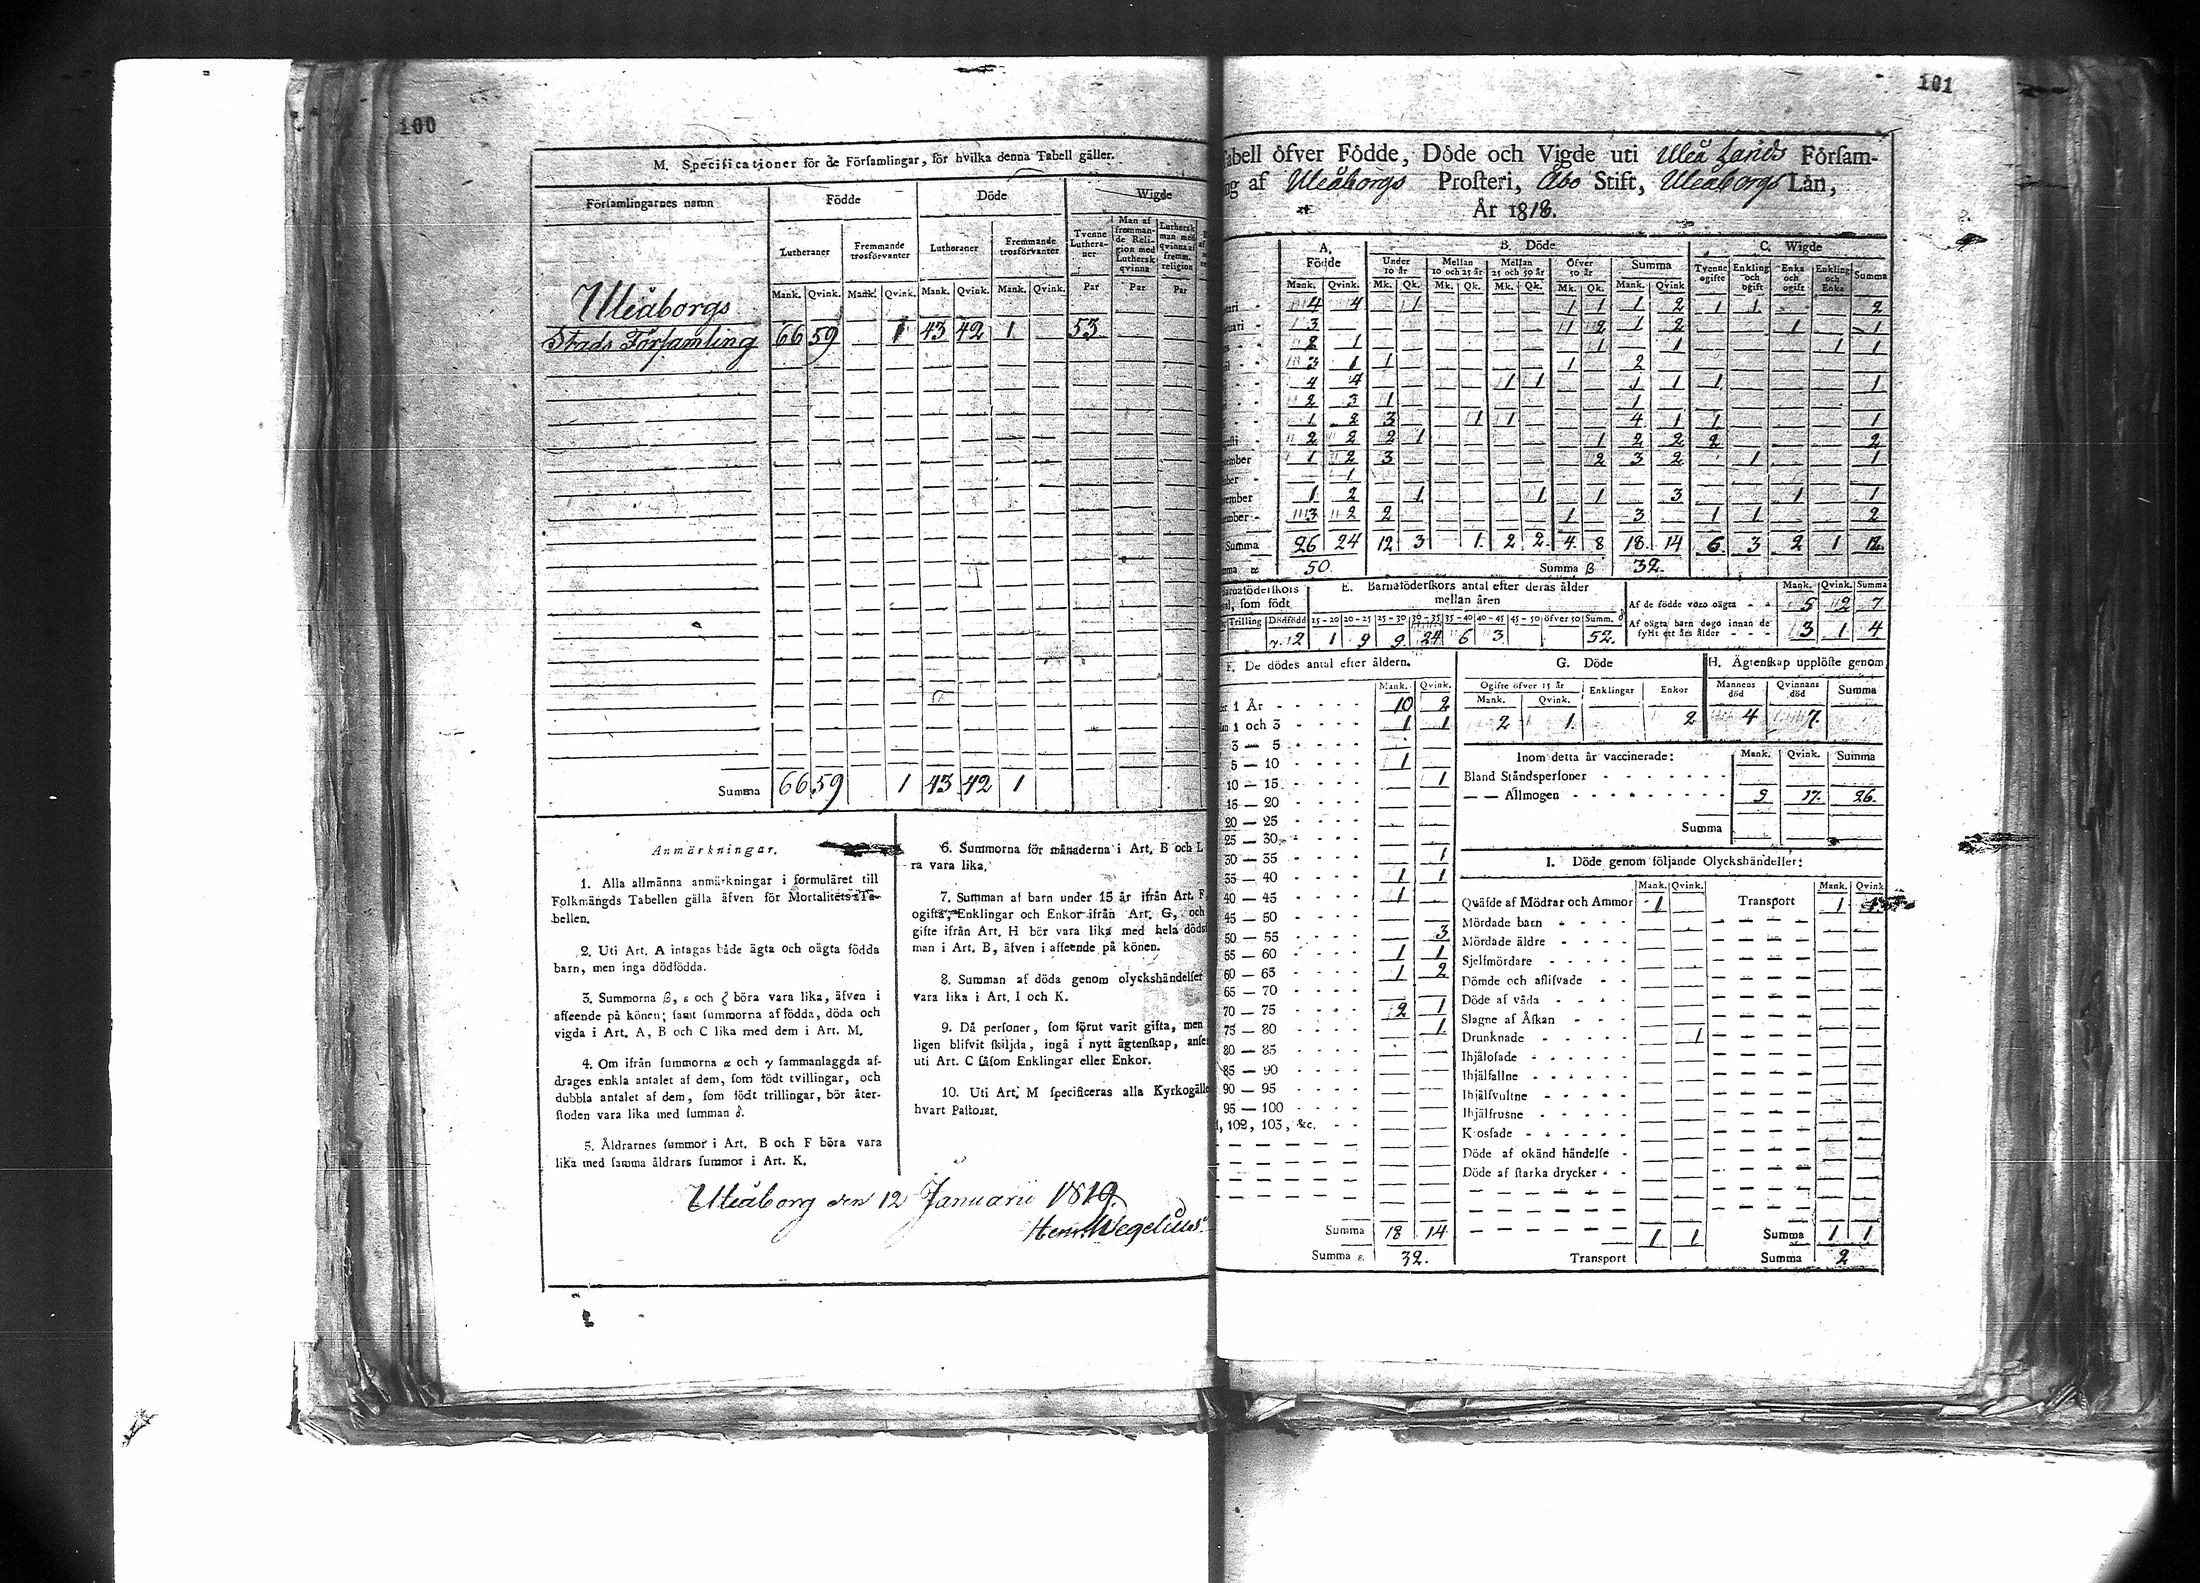 100
M. Specificationer för de Församlingar, för hvilka denna Tabell gäller.
Församlingarnes namn Födde Döde Wigde
Lutheraner Fremmande trosförvanter Lutheraner Fremmande trosförvanter Tvenne Lutheraner Man af fremmande Religion med Luthersk qvinna Luthersk man med qvinna af fremm. religion
Mank. Qvink. Mank. Qvink. Mank. Qvink. Mank. Qvink. Par Par Par
Uleåborgs
Stads Församling 66 59 1 43 42 1 53
Summa 66 59 1 43 42 1
Anmärkningar.
1. Alla allmänna anmärkningar i formuläret till
Folkmängds Tabellen gälla äfven för Mortalitets-Ta-
bellen.
2. Uti Art. A intagas både ägta och oägta födda
barn, men inga dödfödda.
3. Summorna β, ε och ζ böra vara lika, äfven i
affeende på könen; samt summorna af födda, döda och
vigda i Art. A, B och C lika med dem i Art. M.
4. Om ifrån summorna α och γ sammanlaggda af-
drages enkla antalet af dem, som födt tvillingar, och
dubbla antalet af dem, som födt trillingar, bör åter-
stoden vara lika med summan δ.
5. Åldrarnes summor i Art. B och F böra vara
lika med samma åldrars summor i Art. K.
6. Summorna för månaderna i Art. B och L
ra vara lika.
7. Summan af barn under 15 år ifrån Art. F,
ogifta, Enklingar och Enkor ifrån Art. G, och
gifte ifrån Art. H bör vara lika med hela döds
man i Art. B, äfven i affeende på könen.
8. Summan af döda genom olyckshändelser
vara lika i Art. I och K.
9. Då personer, som förut varit gifta, men
ligen blifvit skiljda, ingå i nytt ägtenskap, anse
uti Art. C såsom Enklingar eller Enkor.
10. Uti Art. M specificeras alla Kyrkogälle
hvart Pastorat.
Uleåborg den 12 Januarii 1819.
Henr. Wegelius
101
Tabell öfver Födde, Döde och Vigde uti Uleå Lands Församling
af Uleåborgs Prosteri, Åbo Stift, Uleåborgs Län,
År 1818.
A. Födde B. Döde C. Wigde
Under 10 år Mellan 10 och 25 år Mellan 25 och 50 år Öfver 50 år Summa Tvenne ogifte Enkling och ogift Enka och ogift Enkling och Enka Summa
Mank. Qvink. Mk. Qk. Mk. Qk. Mk. Qk. Mk. Qk. Mank. Qvink
4 4 1 1 1 1 2 1 1 2
3 1 2 1 2 1 1
2 1 1 1 1 1
3 1 1 1 2
4 4 1 1 1 1 1 1
2 3 1 1
1 2 3 1 1 4 1 1 1
2 2 2 1 1 2 2 2 2
ember 1 2 3 2 3 2 1 1
ber 1
ember 1 2 1 1 1 3 1 1
ember 3 2 2 1 3 1 1 2
Summa 26 24 12 3 1 2 2 4 8 18 14 6 3 2 1 12
Summa α 50. Summa β 32.
Barnaföderskors
som födt
Trilling Dödfödd
2
E. Barnaföderskors antal efter deras ålder
mellan åren
15-20 20-25 25-30 30-35 35-40 40-45 45-50 öfver 50 Summ. δ
1 9 9 24 6 3 52.
Mank. Qvink. Summa
Af de födde voro oägta 5 2 7
Af oägta barn dogo innan de
fyllt ett års ålder 3 1 4
F. De dödes antal efter åldern.
Mank. Qvink.
1 År 10 2
1 och 3 1 1
3 — 5
5 — 10 1
10 — 15 1
15 — 20
20 — 25
25 — 30
30 — 35 1
35 — 40 1 1
40 — 45 1
45 — 50
50 — 55 3
55 — 60 1 1
60 — 65 1 2
65 — 70
70 — 75 2 1
75 — 80 1
80 — 85
85 — 90
90 — 95
95 — 100
102, 103, &c.
Summa 18 14
Summa ε. 32.
G. Döde
Ogifte öfver 15 år Enklingar Enkor
Mank. Qvink.
2 1 2
H. Ägtenskap upplöste genom
Mannens död Qvinnans död Summa
4 7
Inom detta år vaccinerade: Mank. Qvink. Summa
Bland Ståndspersoner
— — Allmogen 9 17. 26.
Summa
I. Döde genom följande Olyckshändelser:
Mank. Qvink. Mank. Qvink
Qväfde af Mödrar och Ammor 1 Transport 1 1
Mördade barn
Mördade äldre
Sjelfmördare
Dömde och aflifvade
Döde af våda
Slagne af Åskan
Drunknade 1
Ihjälosade
Ihjälfallne
Ihjälsvultne
Ihjälfrusne
Krossade
Döde af okänd händelse
Döde af starka drycker
1 1 Summa 1 1
Transport Summa 2